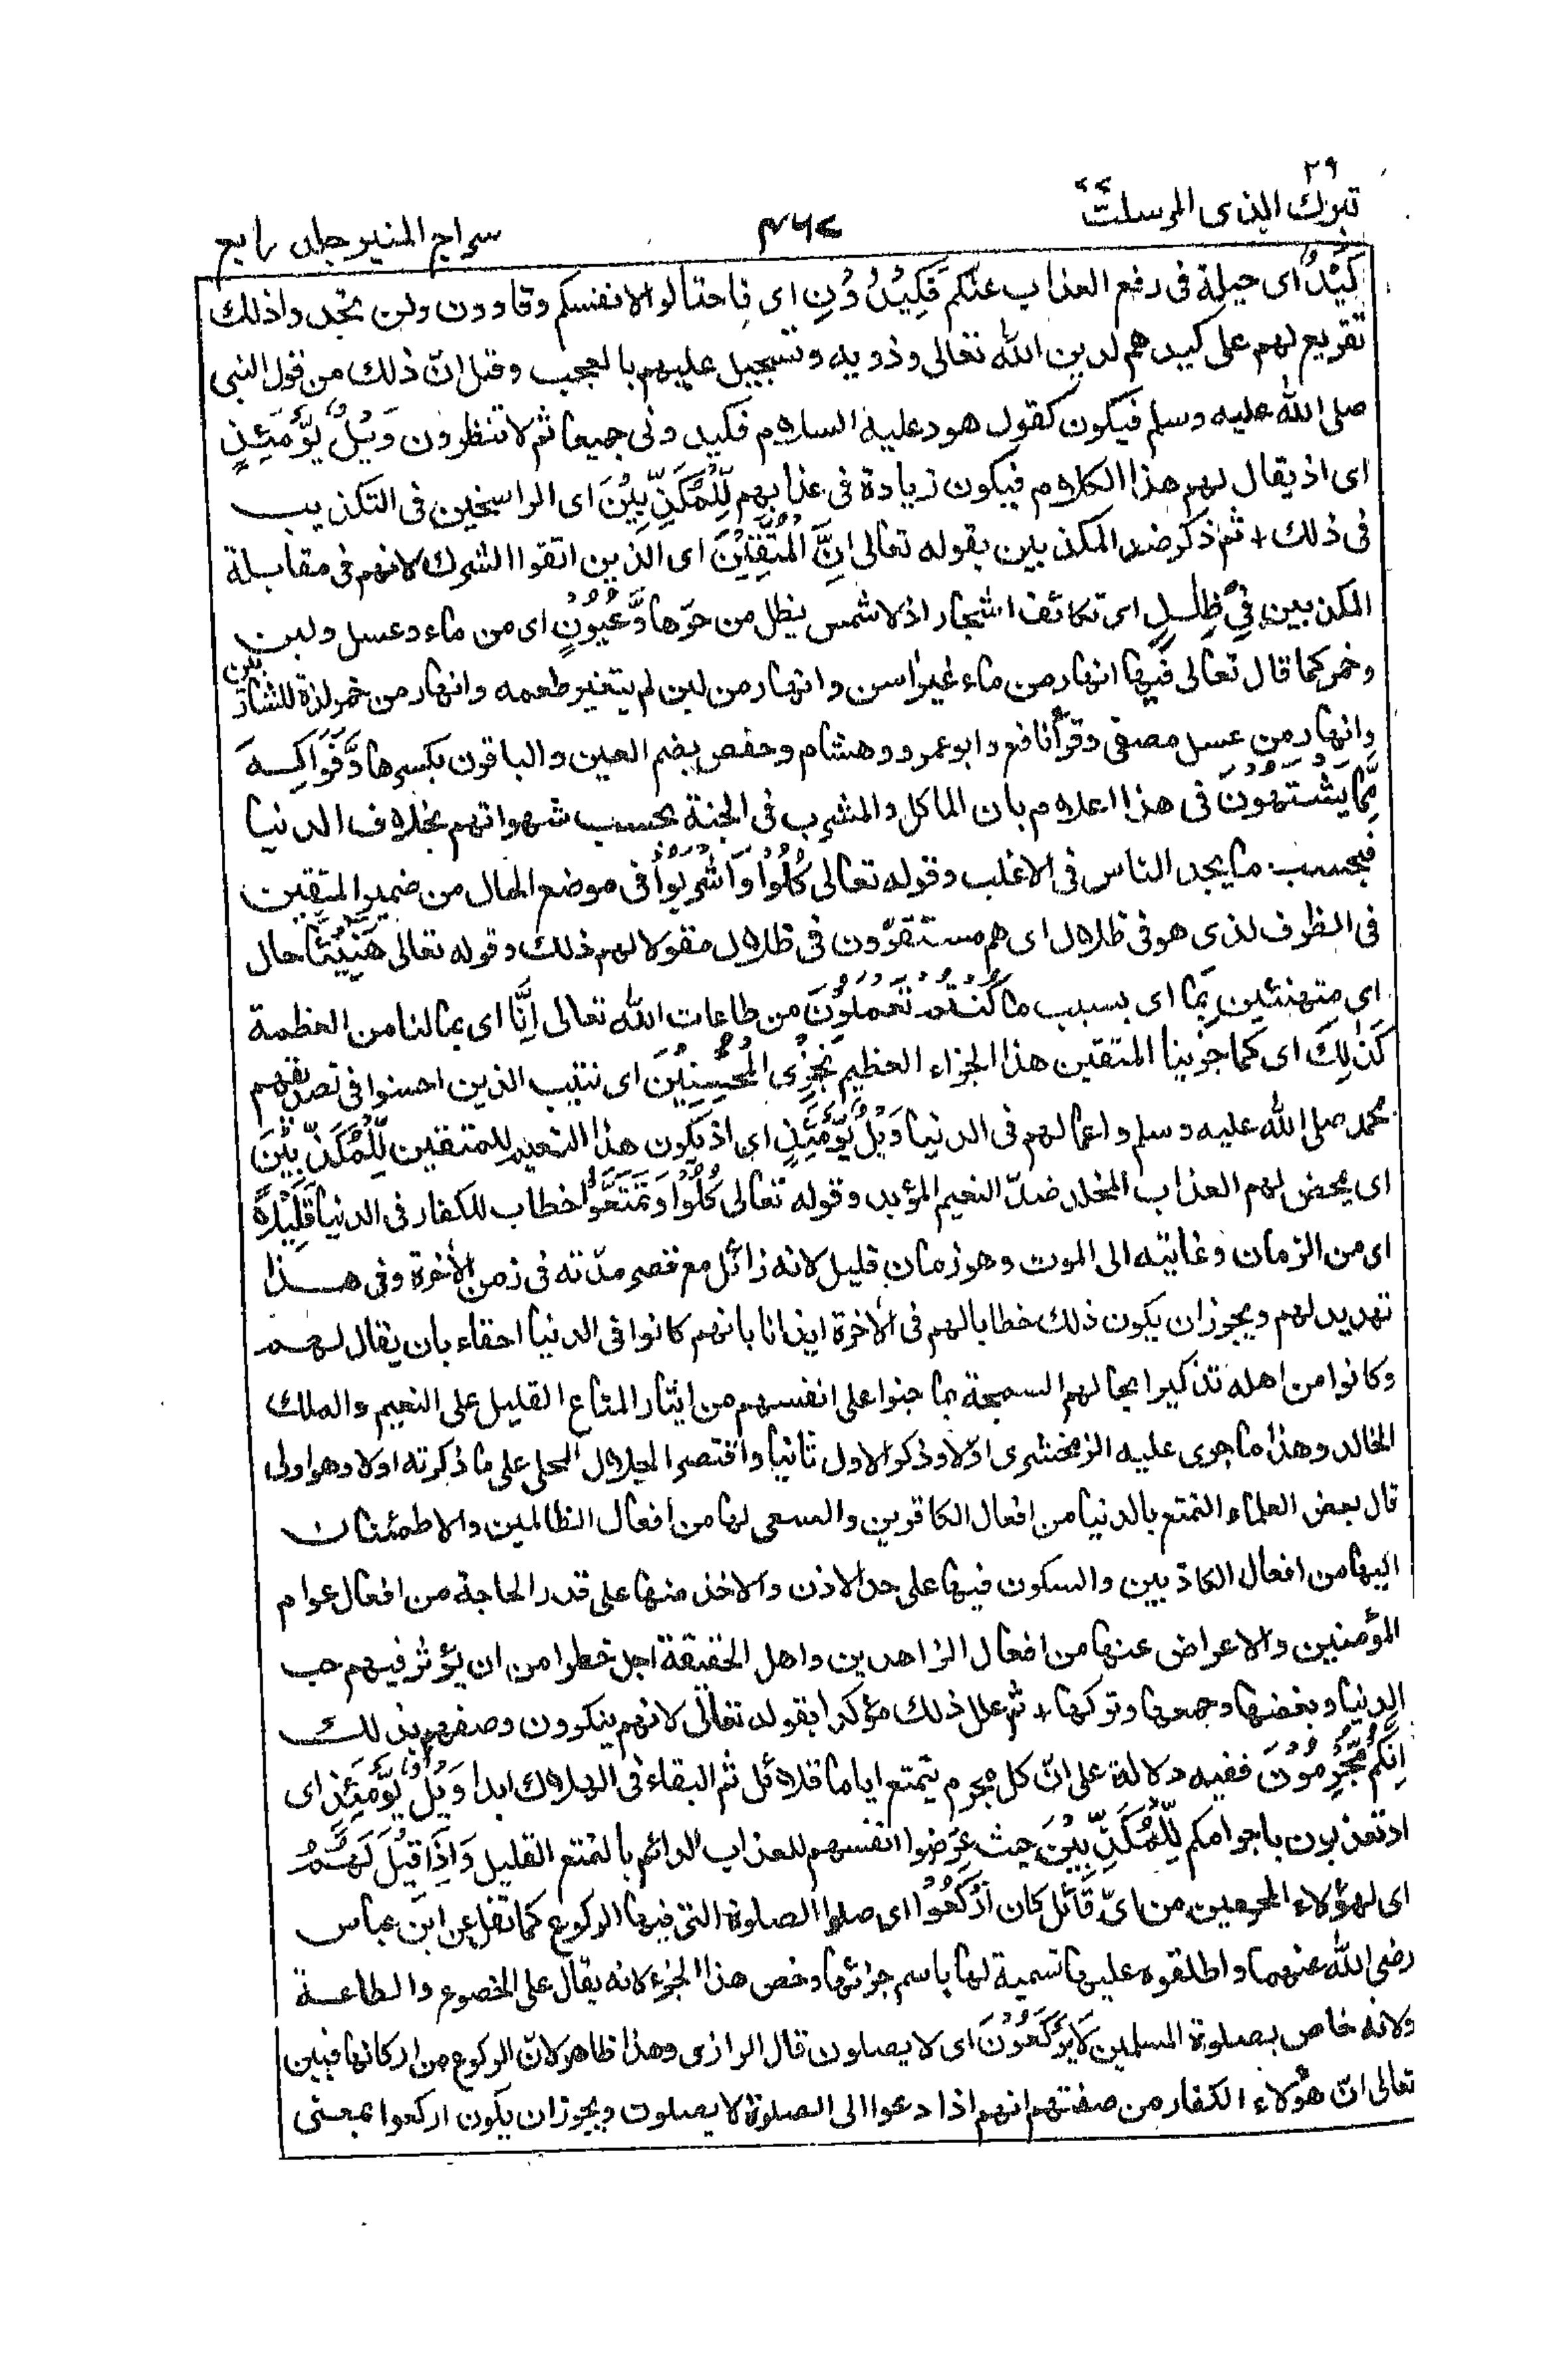 ٢٩
تبرك الذى المرسلت
٤٦٢
سراج المنير جلد رابع
كَيْدٌ اى حيلة فى رفع العذاب عنكم فَكِيْدُوْنِ اى فاحتالوا لانفسكم وقاوون ولن تجدوا ذلك
تقريع لهم على كيدهم لدين الله تعالى وذويه وتسجيل عليهم بالعجب وقيل انّ ذلك من قول النبى
صلى الله عليه وسلم فيكون كقول هود عليه السلام فكيدونى جميعا ثم لا تنظرون وَيْلٌ يَّوْمَئِذٍ
اى اذ يقال لهم هذا الكلام فيكون زيادة فى عذابهم لِّلْمُكَذِّبِيْنَ اى الراسخين فى التكذيب
فى ذلك + ثم ذكر ضد المكذبين بقوله تعالى اِنَّ الْمُتَّقِيْنَ اى الذين اتقوا الشرك لانهم فى مقابلة
المكذبين فِىْ ظِلٰلٍ اى تكاثف اشجار اذ لا شمس يظل من حرّها وَّعُيُوْنٍ اى من ماء وعسل ولبن
وخمر كما قال تعالى فيها انهار من ماء غير اٰسن وانهار من لبن لم يتغير طعمه وانهار من خمر لذة للشاربين
وانهار من عسل مصفى وقرأ نافع وابو عمرو وهشام وحفص بضم العين والباقون بكسرها وَّفَوَاكِهَ
مِمَّا يَشْتَهُوْنَ فى هذا اعلام بان الماكل والمشرب فى الجنة بحسب شهواتهم بخلاف الدنيا
فبحسب ما يجد الناس فى الاغلب وقوله تعالى كُلُوْا وَاشْرَبُوْا فى موضع الحال من ضمير المتقين
فى الظرف الذى هو فى ظلال اى هم مستقرّون فى ظلال مقولا لهم ذلك وقوله تعالى هَنِيْٓئًا حال
اى متهنئين بِمَا اى بسبب ما كُنْتُمْ تَعْمَلُوْنَ من طاعات الله تعالى اِنَّا اى بما لنا من العظمة
كَذٰلِكَ اى كما جزينا المتقين هذا الجزاء العظيم نَجْزِى الْمُحْسِنِيْنَ اى نثيب الذين احسنوا فى تصديقهم
بمحمد صلى الله عليه وسلم واعمالهم فى الدنيا وَيْلٌ يَّوْمَئِذٍ اى اذ يكون هذا النعيم للمتقين لِّلْمُكَذِّبِيْنَ
اى يمحض لهم العذاب المخلد ضدّ النعيم المؤبد وقوله تعالى كُلُوْا وَتَمَتَّعُوْا خطاب للكفار فى الدنيا قَلِيْلًا
اى من الزمان وغايته الى الموت وهو زمان قليل لانه زائل مع قصر مدّته فى زمن الأخرة وفى هذا
تهديد لهم ويجوز ان يكون ذلك خطابا لهم فى الأخرة ايذانا بانهم كانوا فى الدنيا احقاء بان يقال لهم
وكانوا من اهله تذكيرا بحالهم السمجة بما جنوا على انفسهم من ايثار المتاع القليل على النعيم والملك
الخالد وهذا ما جرى عليه الزمخشرى اوّلا وذكر الاول ثانيا واقتصر الجلال المحلى على ما ذكرته اولا وهو اولى
قال بعض العلماء التمتع بالدنيا من افعال الكافرين والسعى لها من افعال الظالمين والاطمئنان
اليها من افعال الكاذبين والسكون فيها على حد الاذن والاخذ منها على قدر الحاجة من افعال عوام
المؤمنين والاعراض عنها من افعال الزاهدين واهل الحقيقة اجل خطرا من ان يؤثر فيهم حب
الدنيا وبغضها وجمعها وتركها + ثم علل ذلك مؤكدا بقوله تعالى لانهم ينكرون وصفهم بذلك
اِنَّكُمْ مُّجْرِمُوْنَ ففيه دلالة على انّ كل مجرم يتمتع اياما قلائل ثم البقاء فى الهلاك ابدا وَيْلٌ يَّوْمَئِذٍ اى
اذ تعذبون باجرامكم لِّلْمُكَذِّبِيْنَ حيث عرضوا انفسهم للعذاب الدائم بالتمتع القليل وَاِذَا قِيْلَ لَهُمُ
اى لهؤلاء المجرمين من اىّ قائل كان ارْكَعُوْا اى صلوا الصلوة التى فيها الركوع كما نقل عن ابن عباس
رضى الله عنهما واطلقوه عليها تسمية لها باسم جزئها وخص هذا الجزء لانه يقال على الخضوع والطاعة
ولانه خاص بصلوة المسلمين لَا يَرْكَعُوْنَ اى لا يصلون قال الرازى وهذا ظاهر لانّ الركوع من اركانها فبين
تعالى انّ هؤلاء الكفار من صفتهم انهم اذا دعوا الى الصلوة لا يصلون ويجوز ان يكون اركعوا بمعنى